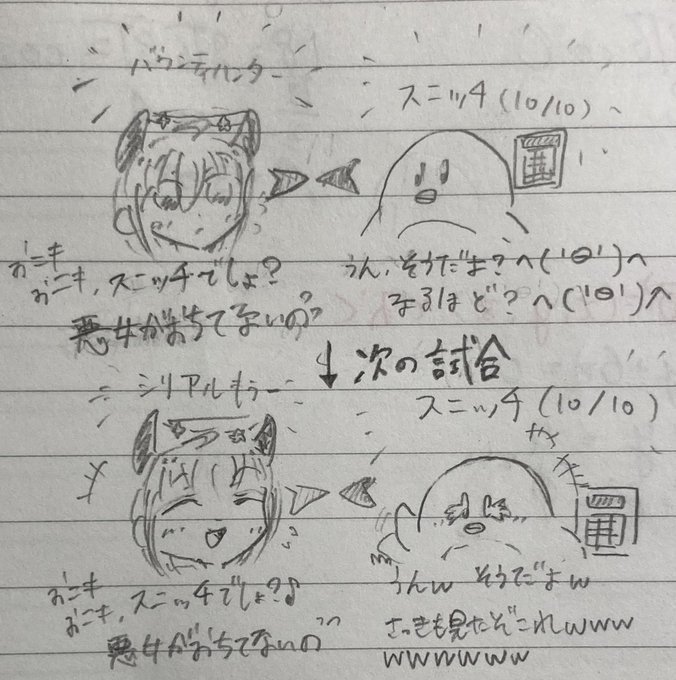 バウンティハンター
スニッチ(10/10)
おニキ
おニキ,スニッチでしょ?
悪女がおちてないの??
うん,そうだよ?ヘ('Θ')ヘ
なるほど?ヘ('Θ')ヘ
↓次の試合
シリアルもぅー
スニッチ(10/10)
おニキ
おニキ,スニッチでしょ?♪
悪女がおちてないの??
うんw そうだよw
さっきも見たぞこれwww
wwwwwww